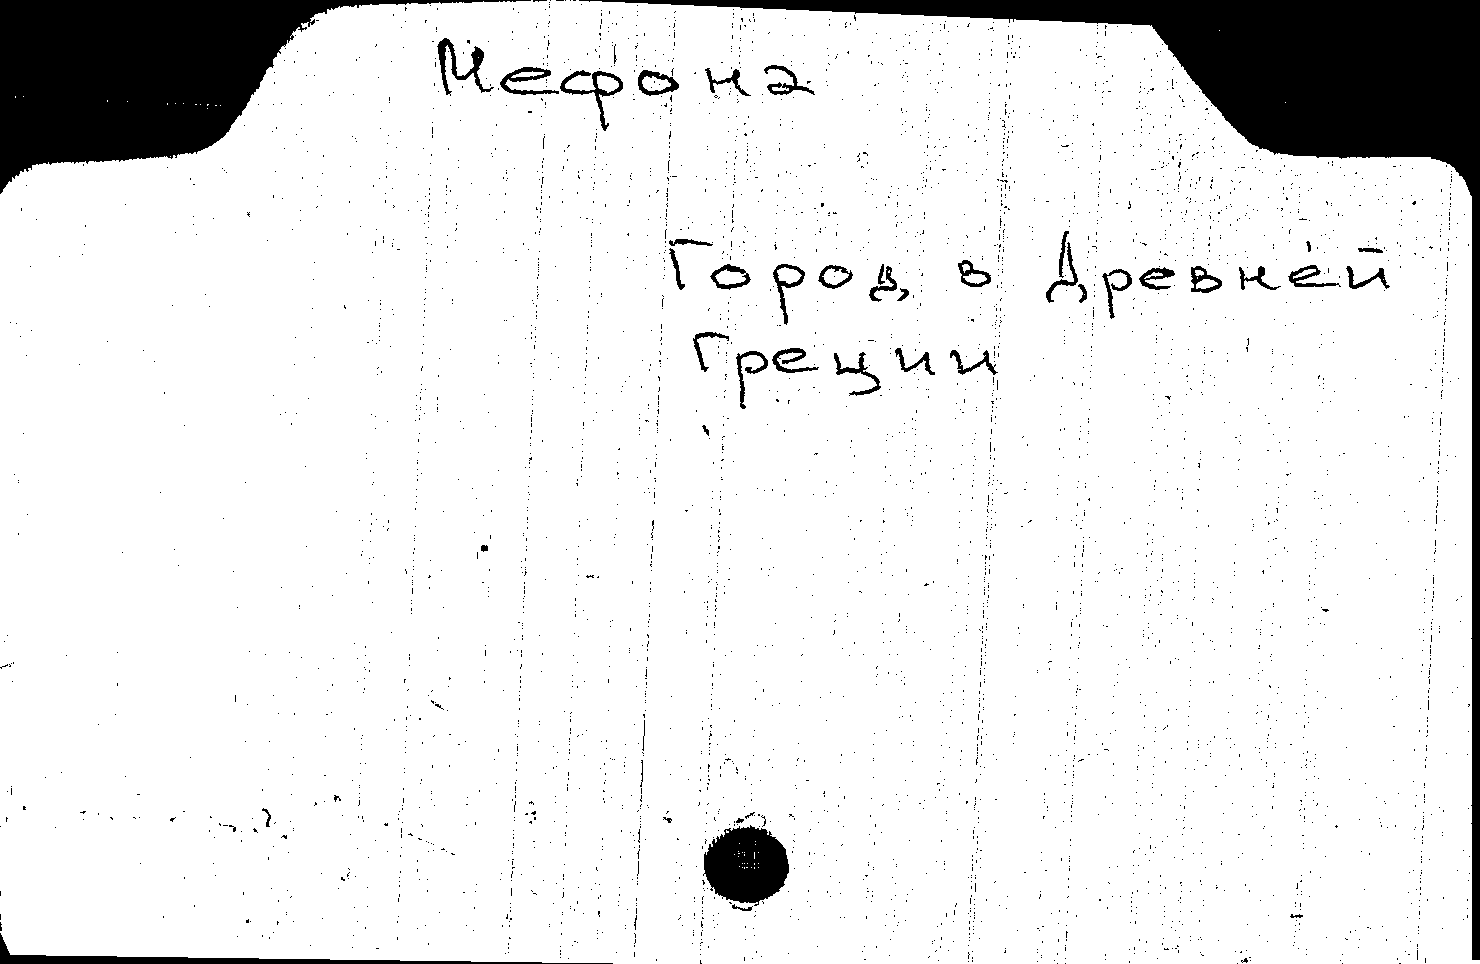 Мефона
Город в Древней
Греции